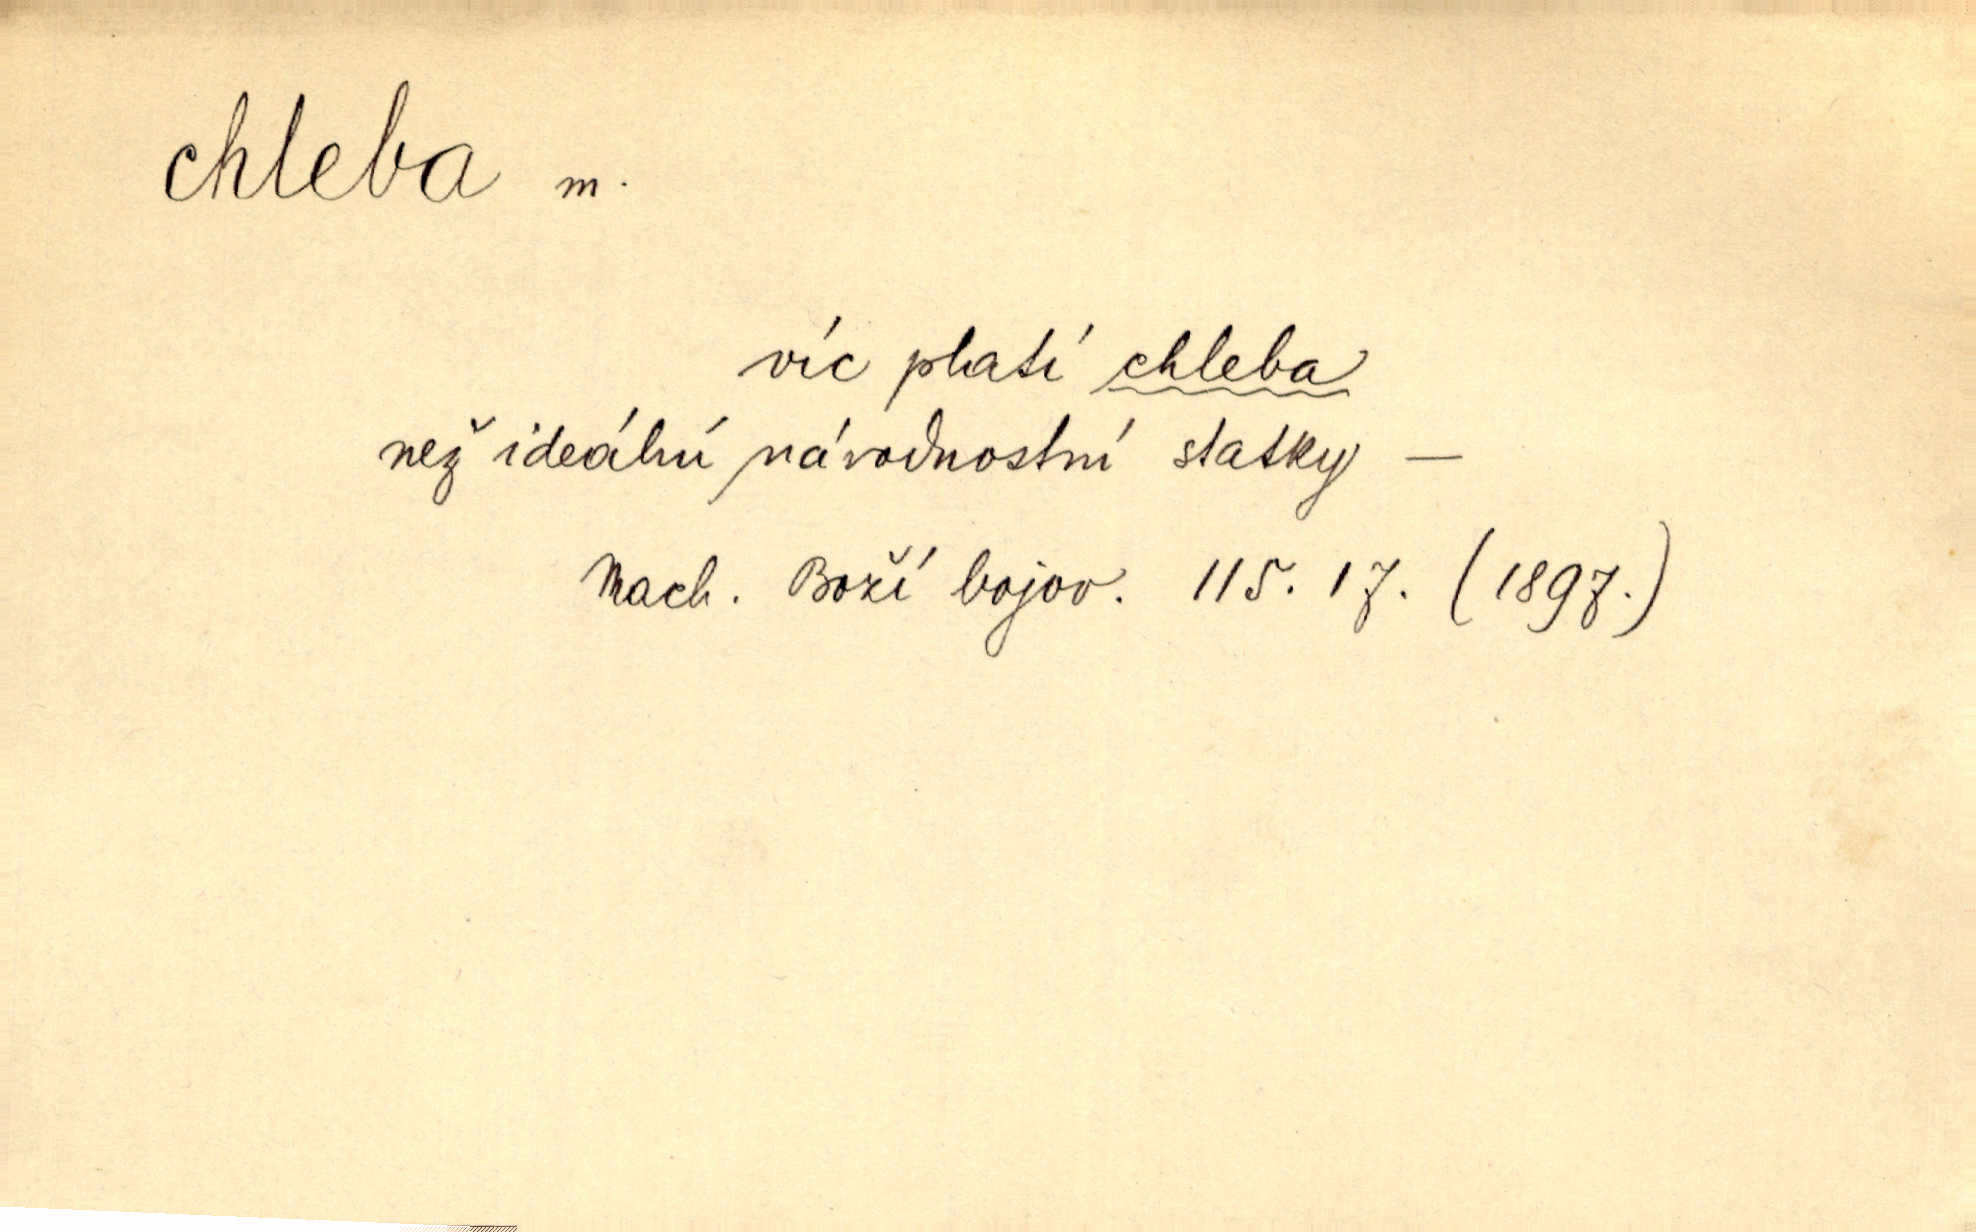 chleba m.
víc platí chleba
než ideální národnostní statky —
Mach. Boží bojov. 115. 17. (1897.)